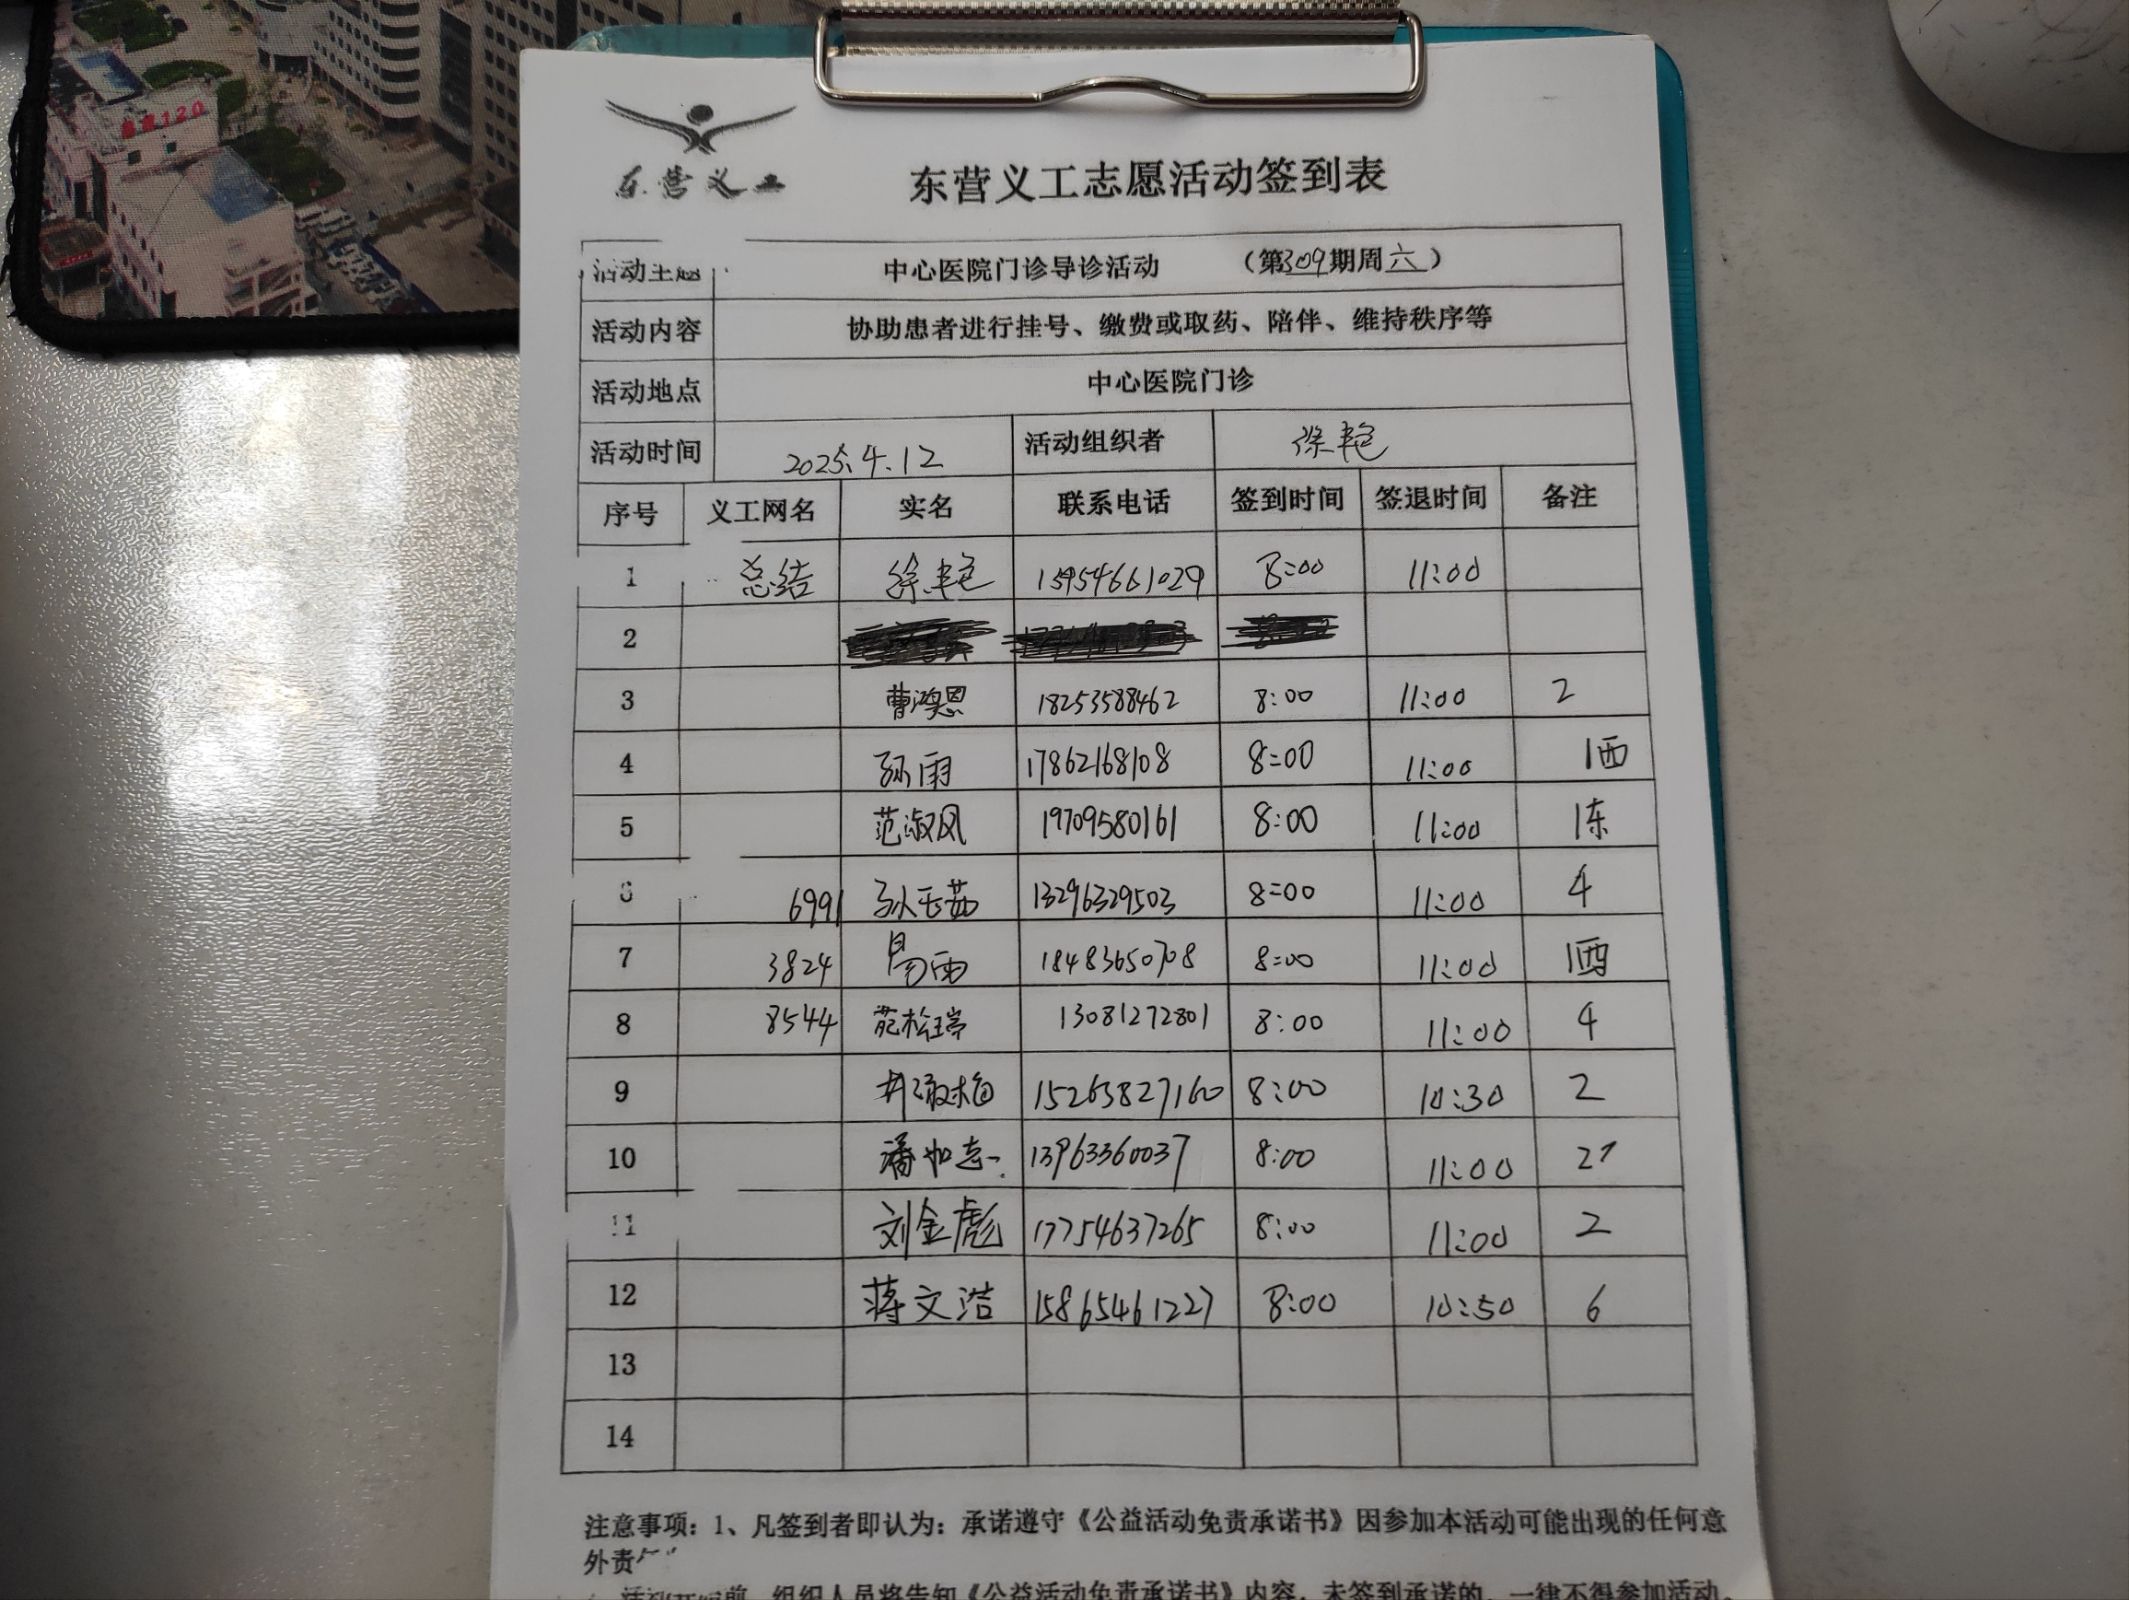 急救120
东营义工
东营义工志愿活动签到表
活动主题 中心医院门诊导诊活动 （第309期周六）
活动内容 协助患者进行挂号、缴费或取药、陪伴、维持秩序等
活动地点 中心医院门诊
活动时间 2025.4.12 活动组织者 徐艳
序号 义工网名 实名 联系电话 签到时间 签退时间 备注
1 总结 徐艳 13954661029 8:00 11:00
2
3 曹鸿恩 18253588462 8:00 11:00 2
4 孙雨 17862168108 8:00 11:00 1西
5 范淑凤 19709580161 8:00 11:00 1东
6 6991 孙玉茹 13296329503 8:00 11:00 4
7 3824 易雨 18483650708 8:00 11:00 1西
8 8544 范松瑞 13081272801 8:00 11:00 4
9 井淑梅 15263827160 8:00 10:30 2
10 潘如志 13963360037 8:00 11:00 2
11 刘金彪 17754637265 8:00 11:00 2
12 蒋文浩 15865461227 8:00 10:50 6
13
14
注意事项：1、凡签到者即认为：承诺遵守《公益活动免责承诺书》因参加本活动可能出现的任何意
外责
活动开始前，组织人员将告知《公益活动免责承诺书》内容，未签到承诺的，一律不得参加活动。